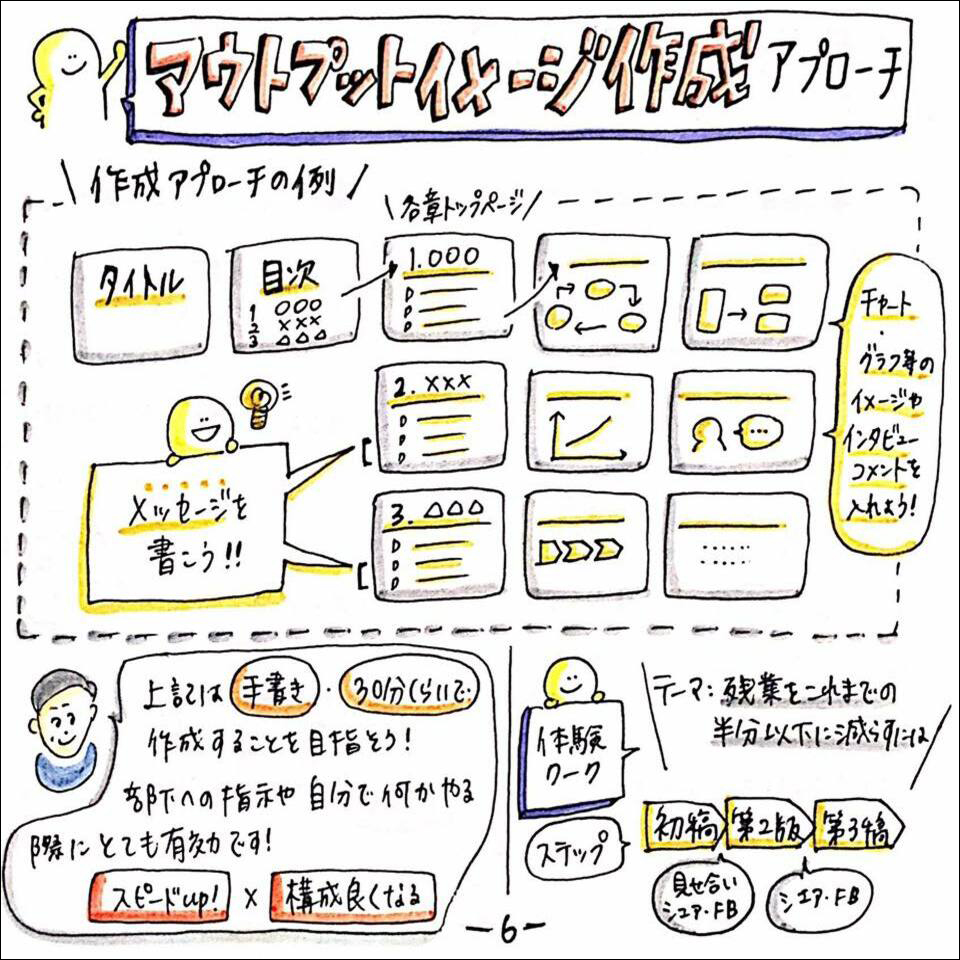 アウトプットイメージ作成アプローチ
作成アプローチの例
各章トップページ
タイトル
目次
1 ○○○
2 ×××
3 △△△
1.○○○
2.×××
3.△△△
チャート・
グラフ等の
イメージや
インタビュー
コメントを
入れよう!
メッセージを
書こう!!
上記は 手書き・30分くらいで
作成することを目指そう!
部下への指示や自分で何かやる
際にとても有効です!
スピードup! × 構成良くなる
体験
ワーク
テーマ:残業をこれまでの
半分以下に減らすには
ステップ
初稿 第2版 第3稿
見せ合い
シェア・FB
シェア・FB
-6-